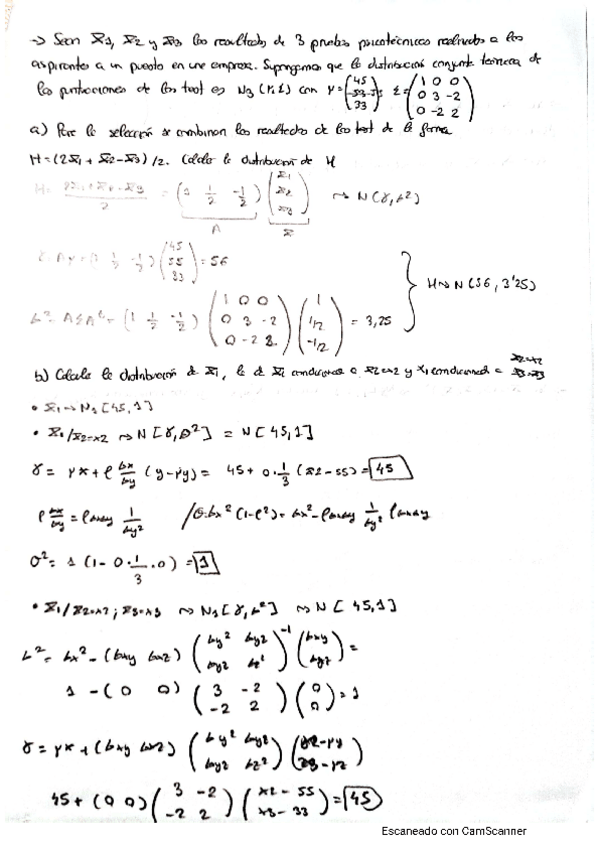 → Sean X1, X2 y X3 los resultados de 3 pruebas psicotécnicas realizadas a los
aspirantes a un puesto en una empresa. Supongamos que la distribución conjunta teórica de
las puntuaciones de los test es N3 (μ, Σ) con μ = (45 55 33) Σ = (1 0 0
0 3 -2
0 -2 2)
a) Para la selección se combinan los resultados de los test de la forma
H = (2X1 + X2 - X3) / 2. Calcula la distribución de H
H = (2X1 + X2 - X3) / 2 = (1 1/2 -1/2) (X1 X2 X3) ~> N(γ, σ²)
A X
γ = Aμ = (1 1/2 -1/2) (45 55 33) = 56
H ~> N(56, 3'25)
σ² = AΣA^t = (1 1/2 -1/2) (1 0 0
0 3 -2
0 -2 2) (1 1/2 -1/2) = 3,25
b) Calcula la distribución de X1, la de X1 condicionada a X2=x2 y X1 condicionada a X2=x2 X3=x3
• X1 → N1 [45, 1]
• X1/X2=x2 ~> N[γ, σ²] = N[45, 1]
γ = μx + ρ σx/σy (y - μy) = 45 + 0 · 1/3 (x2 - 55) = 45
σ² = 1 (1 - 0 · 1/3 · 0) = 1
• X1/X2=x2; X3=x3 ~> N1 [γ, σ²] ~> N[45, 1]
σ² = σx² - (σxy σxz) (σy² σyz
σyz σz²)^-1 (σxy σxz) =
1 - (0 0) (3 -2
-2 2) (0 0) = 1
γ = μx + (σxy σxz) (σy² σyz
σyz σz²) (x2 - μy
x3 - μz)
45 + (0 0) (3 -2
-2 2) (x2 - 55
x3 - 33) = 45
Escaneado con CamScanner